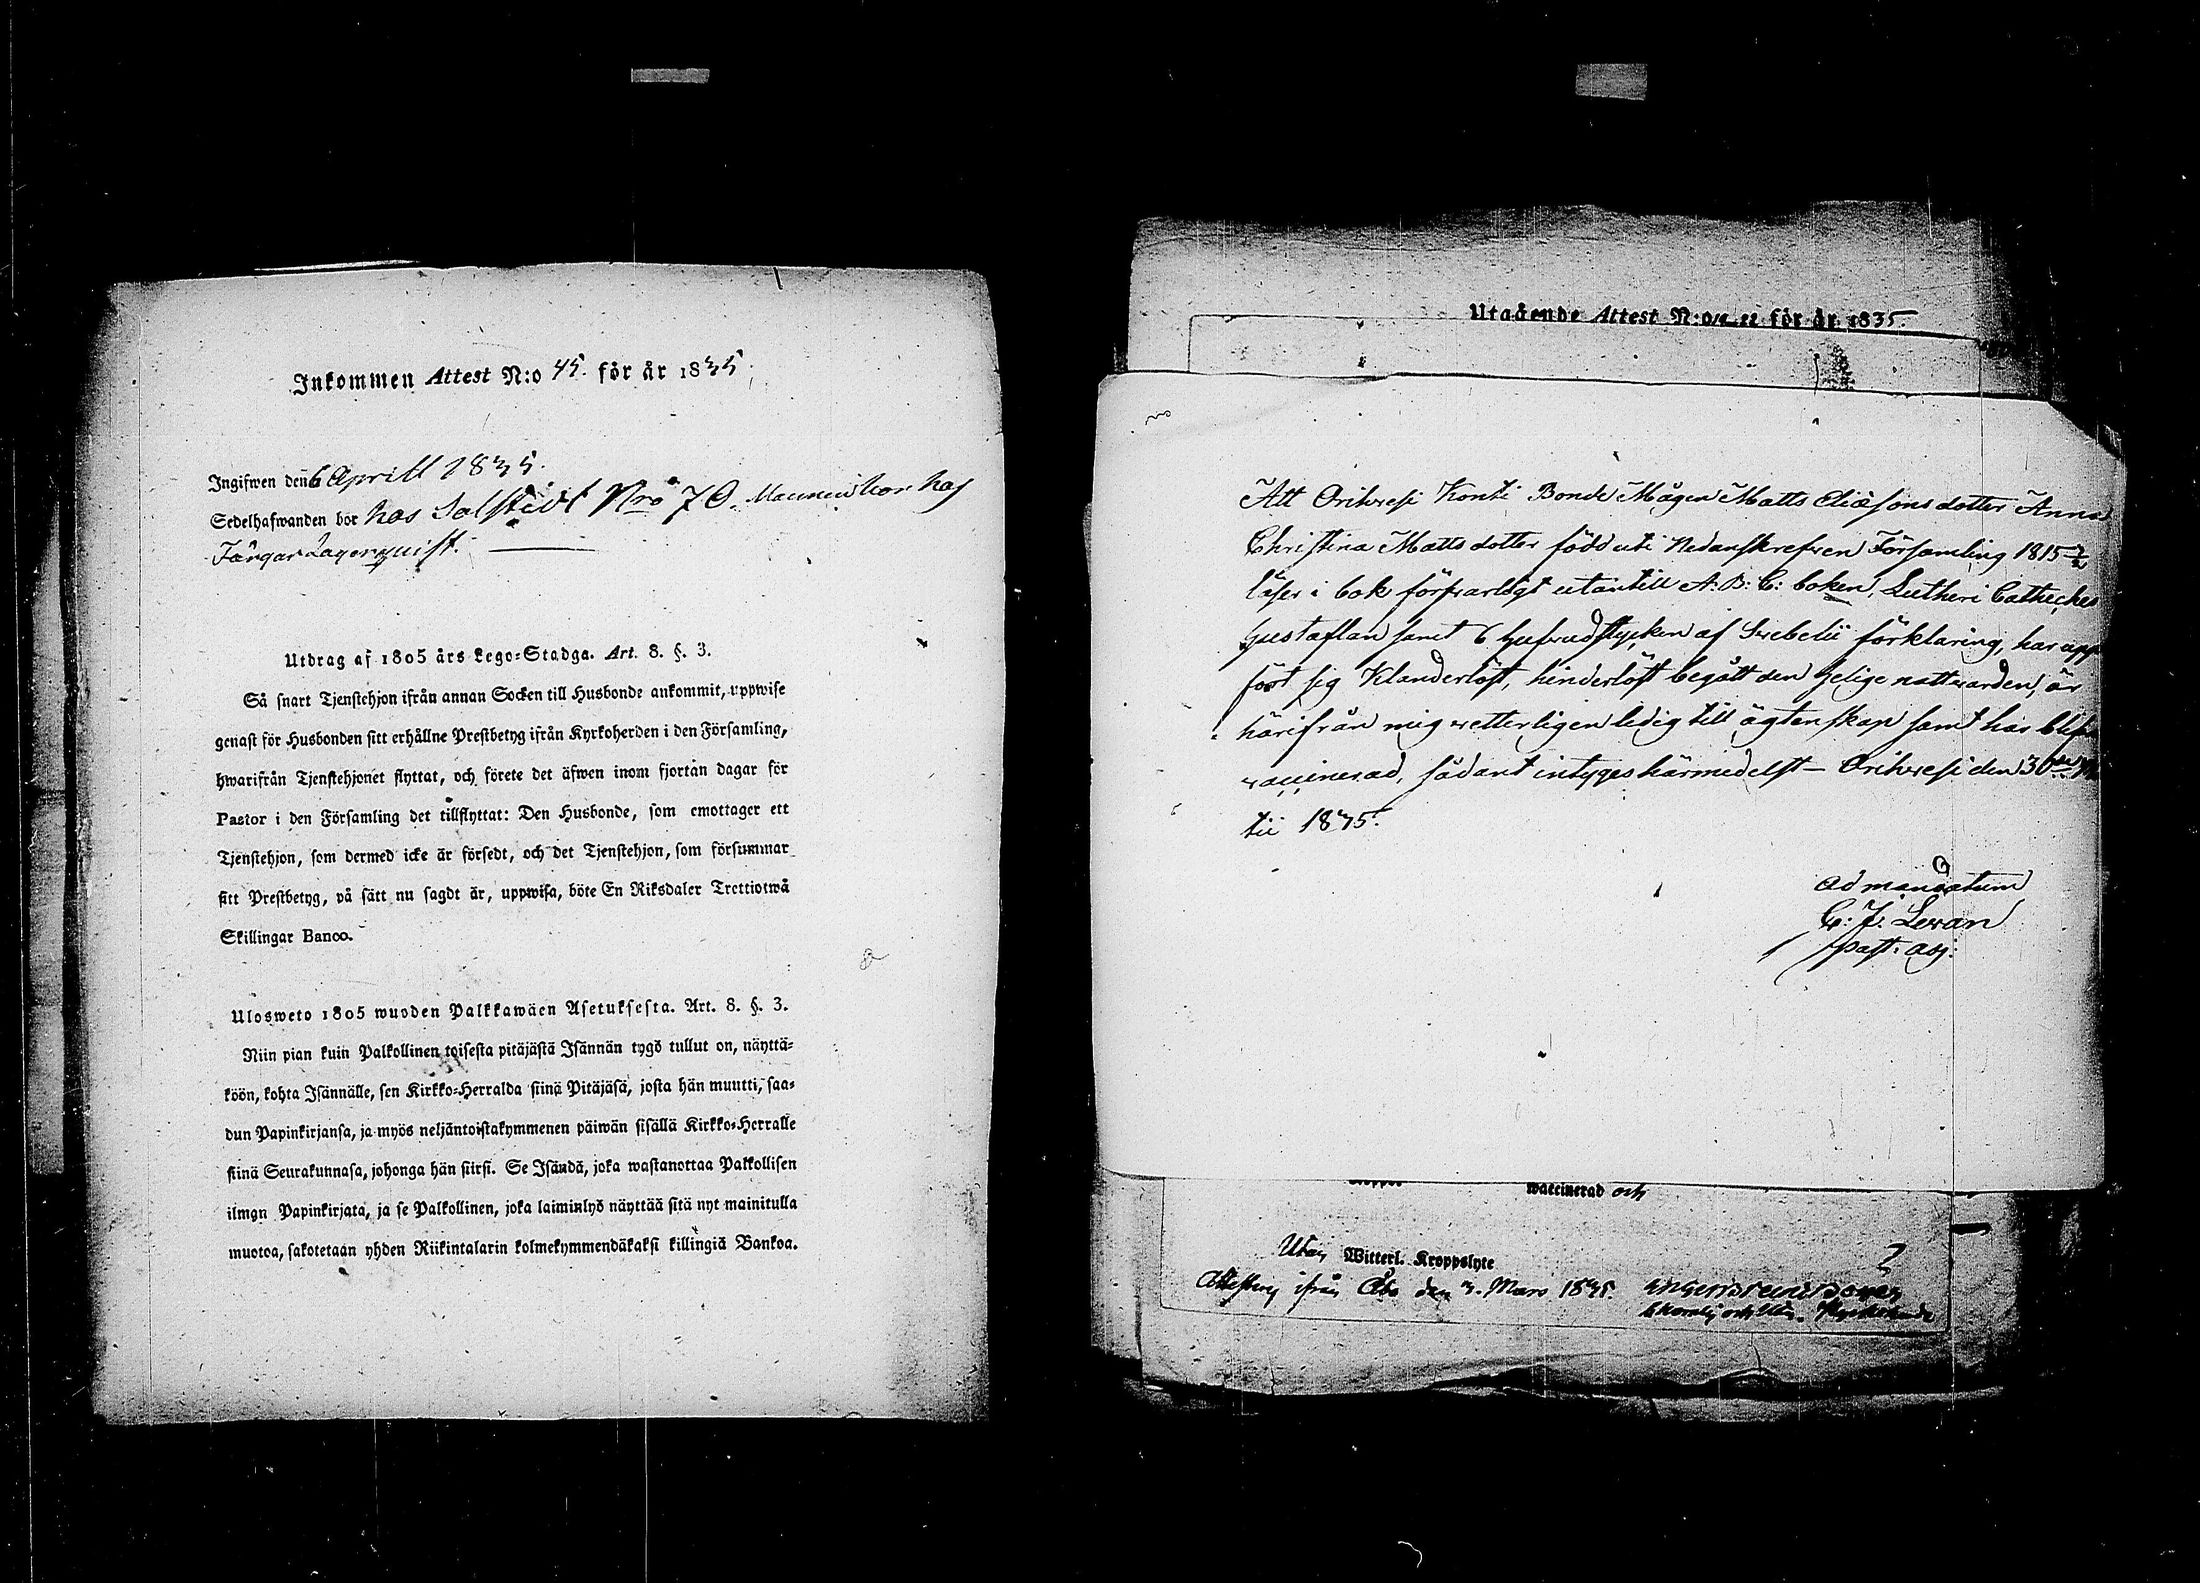 Inkommen Attest N:o 45. för år 1835.
Ingifwen den 6 Aprill 1835.
Sedelhafwanden bor hos Salstedt Nro 70. Mannen bor hos
Färgar Lagerquist.
Utdrag af 1805 års Lego-Stadga. Art. 8. §. 3.
Så snart Tjenstehjon ifrån annan Socken till Husbonde ankommit, uppwise
genast för Husbonden sitt erhållne Prestbetyg ifrån Kyrkoherden i den Församling,
hwarifrån Tjenstehjonet flyttat, och förete det äfwen inom fjortån dagar för
Pastor i den Församling det tillflyttat: Den Husbonde, som emottager ett
Tjenstehjon, som dermed icke är försedt, och det Tjenstehjon, som försummar
sitt Prestbetyg, på sätt nu sagdt är, uppwisa, böte En Riksdaler Trettiotwå
Skillingar Banco.
Ulosweto 1805 wuoden Palkkawäen Asetuksesta. Art. 8. §. 3.
Niin pian kuin Palkollinen toisesta pitäjästä Isännän tygö tullut on, näyttä-
köön, kohta Isännälle, sen Kirkko-Herralda siinä Pitäjäsä, josta hän muutti, saa-
dun Papinkirjansa, ja myös neljäntoistakymmenen päiwän sisällä Kirkko-Herralle
siinä Seurakunnasa, johonga hän siirsi. Se Isändä, joka wastanottaa Palkollisen
ilman Papinkirjata, ja se Palkollinen, joka laiminlyö näyttää sitä nyt mainitulla
muotoa, sakotetaan yhden Riikintalarin kolmekymmendäkaksi killingiä Bankoa.
Utgående Attest N:o för år 1835.
Att Orihvesi Konti Bonde Mågen Matts Eliæsons dotter Anna
Christina Mattsdotter född uti Nedanskrefven Församling 1815
läser i bok försvarligt utantill A.B.C. boken, Lutheri Catheches
Hustaflan samt 6 hufvudstycken af Svebelii förklaring, har upp
fört sig Klanderlöst, hinderlöst begått den helige nattvarden, är
härifrån mig vetterligen ledig till ägtenskap samt har blifv
vaccinerad, sådant intygas härmedelst – Orihvesi den 30
tii 1835.
ad mandatum
C. J. Levan
Past. adj:
waccinerad och
Utan Witterl. Kroppslyte
ifrån Åbo den 3. Mars 1835.